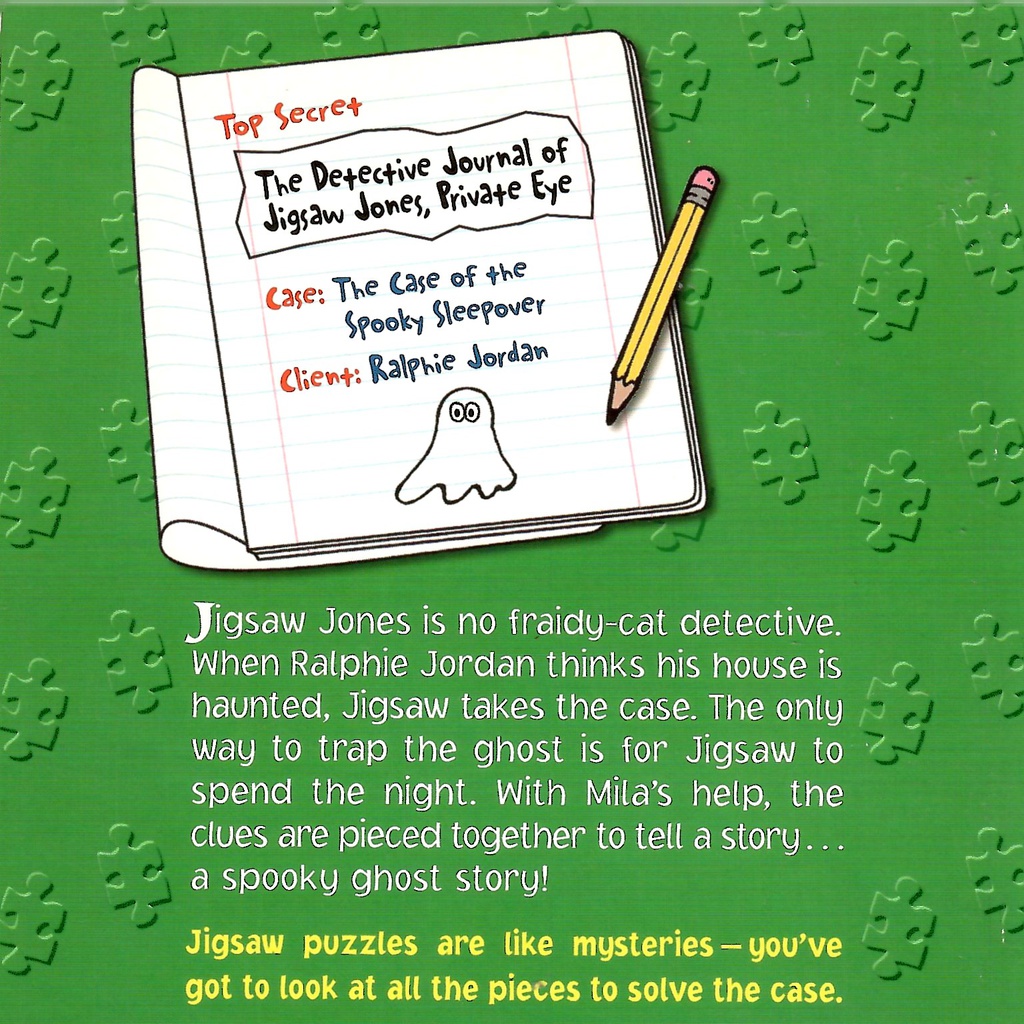 Top Secret
The Detective Journal of
Jigsaw Jones, Private Eye
Case: The Case of the
Spooky Sleepover
Client: Ralphie Jordan
Jigsaw Jones is no fraidy-cat detective.
When Ralphie Jordan thinks his house is
haunted, Jigsaw takes the case. The only
way to trap the ghost is for Jigsaw to
spend the night. With Mila's help, the
clues are pieced together to tell a story...
a spooky ghost story!
Jigsaw puzzles are like mysteries — you've
got to look at all the pieces to solve the case.